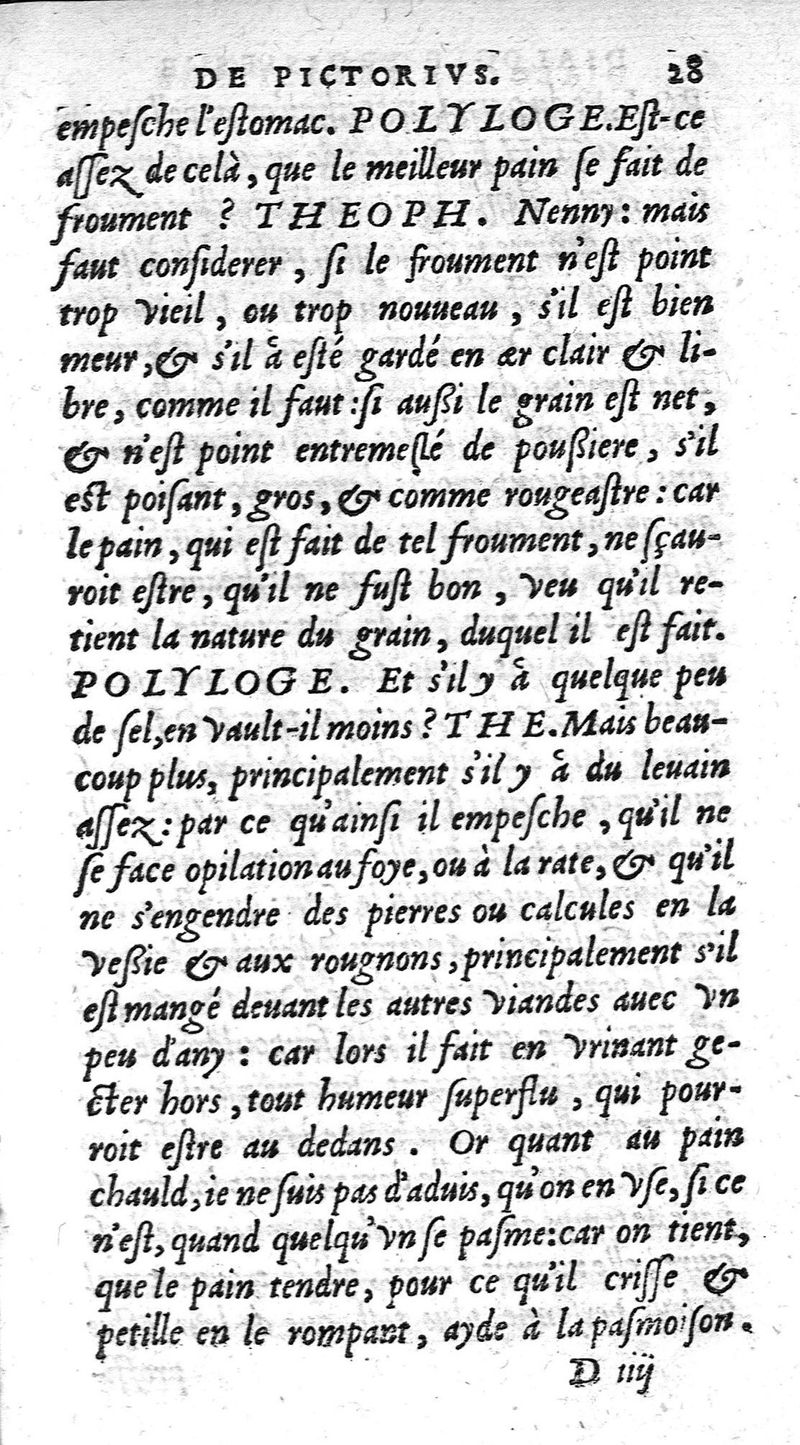 DE PICTORIVS. 28
empeſche l'eſtomac. POLYLOGE. Eſt-ce
aſſez de celà, que le meilleur pain ſe fait de
froument ? THEOPH. Nenny: mais
faut conſiderer, ſi le froument n'eſt point
trop vieil, ou trop nouueau, s'il eſt bien
meur, & s'il à eſté gardé en ær clair & li-
bre, comme il faut: ſi außi le grain eſt net,
& n'eſt point entremeſlé de poußiere, s'il
eſt poiſant, gros, & comme rougeaſtre: car
le pain, qui eſt fait de tel froument, ne ſçau-
roit eſtre, qu'il ne fuſt bon, veu qu'il re-
tient la nature du grain, duquel il eſt fait.
POLYLOGE. Et s'il y à quelque peu
de ſel, en vault-il moins ? THE. Mais beau-
coup plus, principalement s'il y à du leuain
aſſez: par ce qu'ainſi il empeſche, qu'il ne
ſe face opilation au foye, ou à la rate, & qu'il
ne s'engendre des pierres ou calcules en la
veßie & aux rougnons, principalement s'il
eſt mangé deuant les autres viandes auec vn
peu d'any : car lors il fait en vrinant ge-
cter hors, tout humeur ſuperflu, qui pour-
roit eſtre au dedans. Or quant au pain
chauld, ie ne ſuis pas d'aduis, qu'on en vſe, ſi ce
n'eſt, quand quelqu'vn ſe paſme: car on tient,
que le pain tendre, pour ce qu'il criſſe &
petille en le rompant, ayde à la paſmoiſon.
D iiij